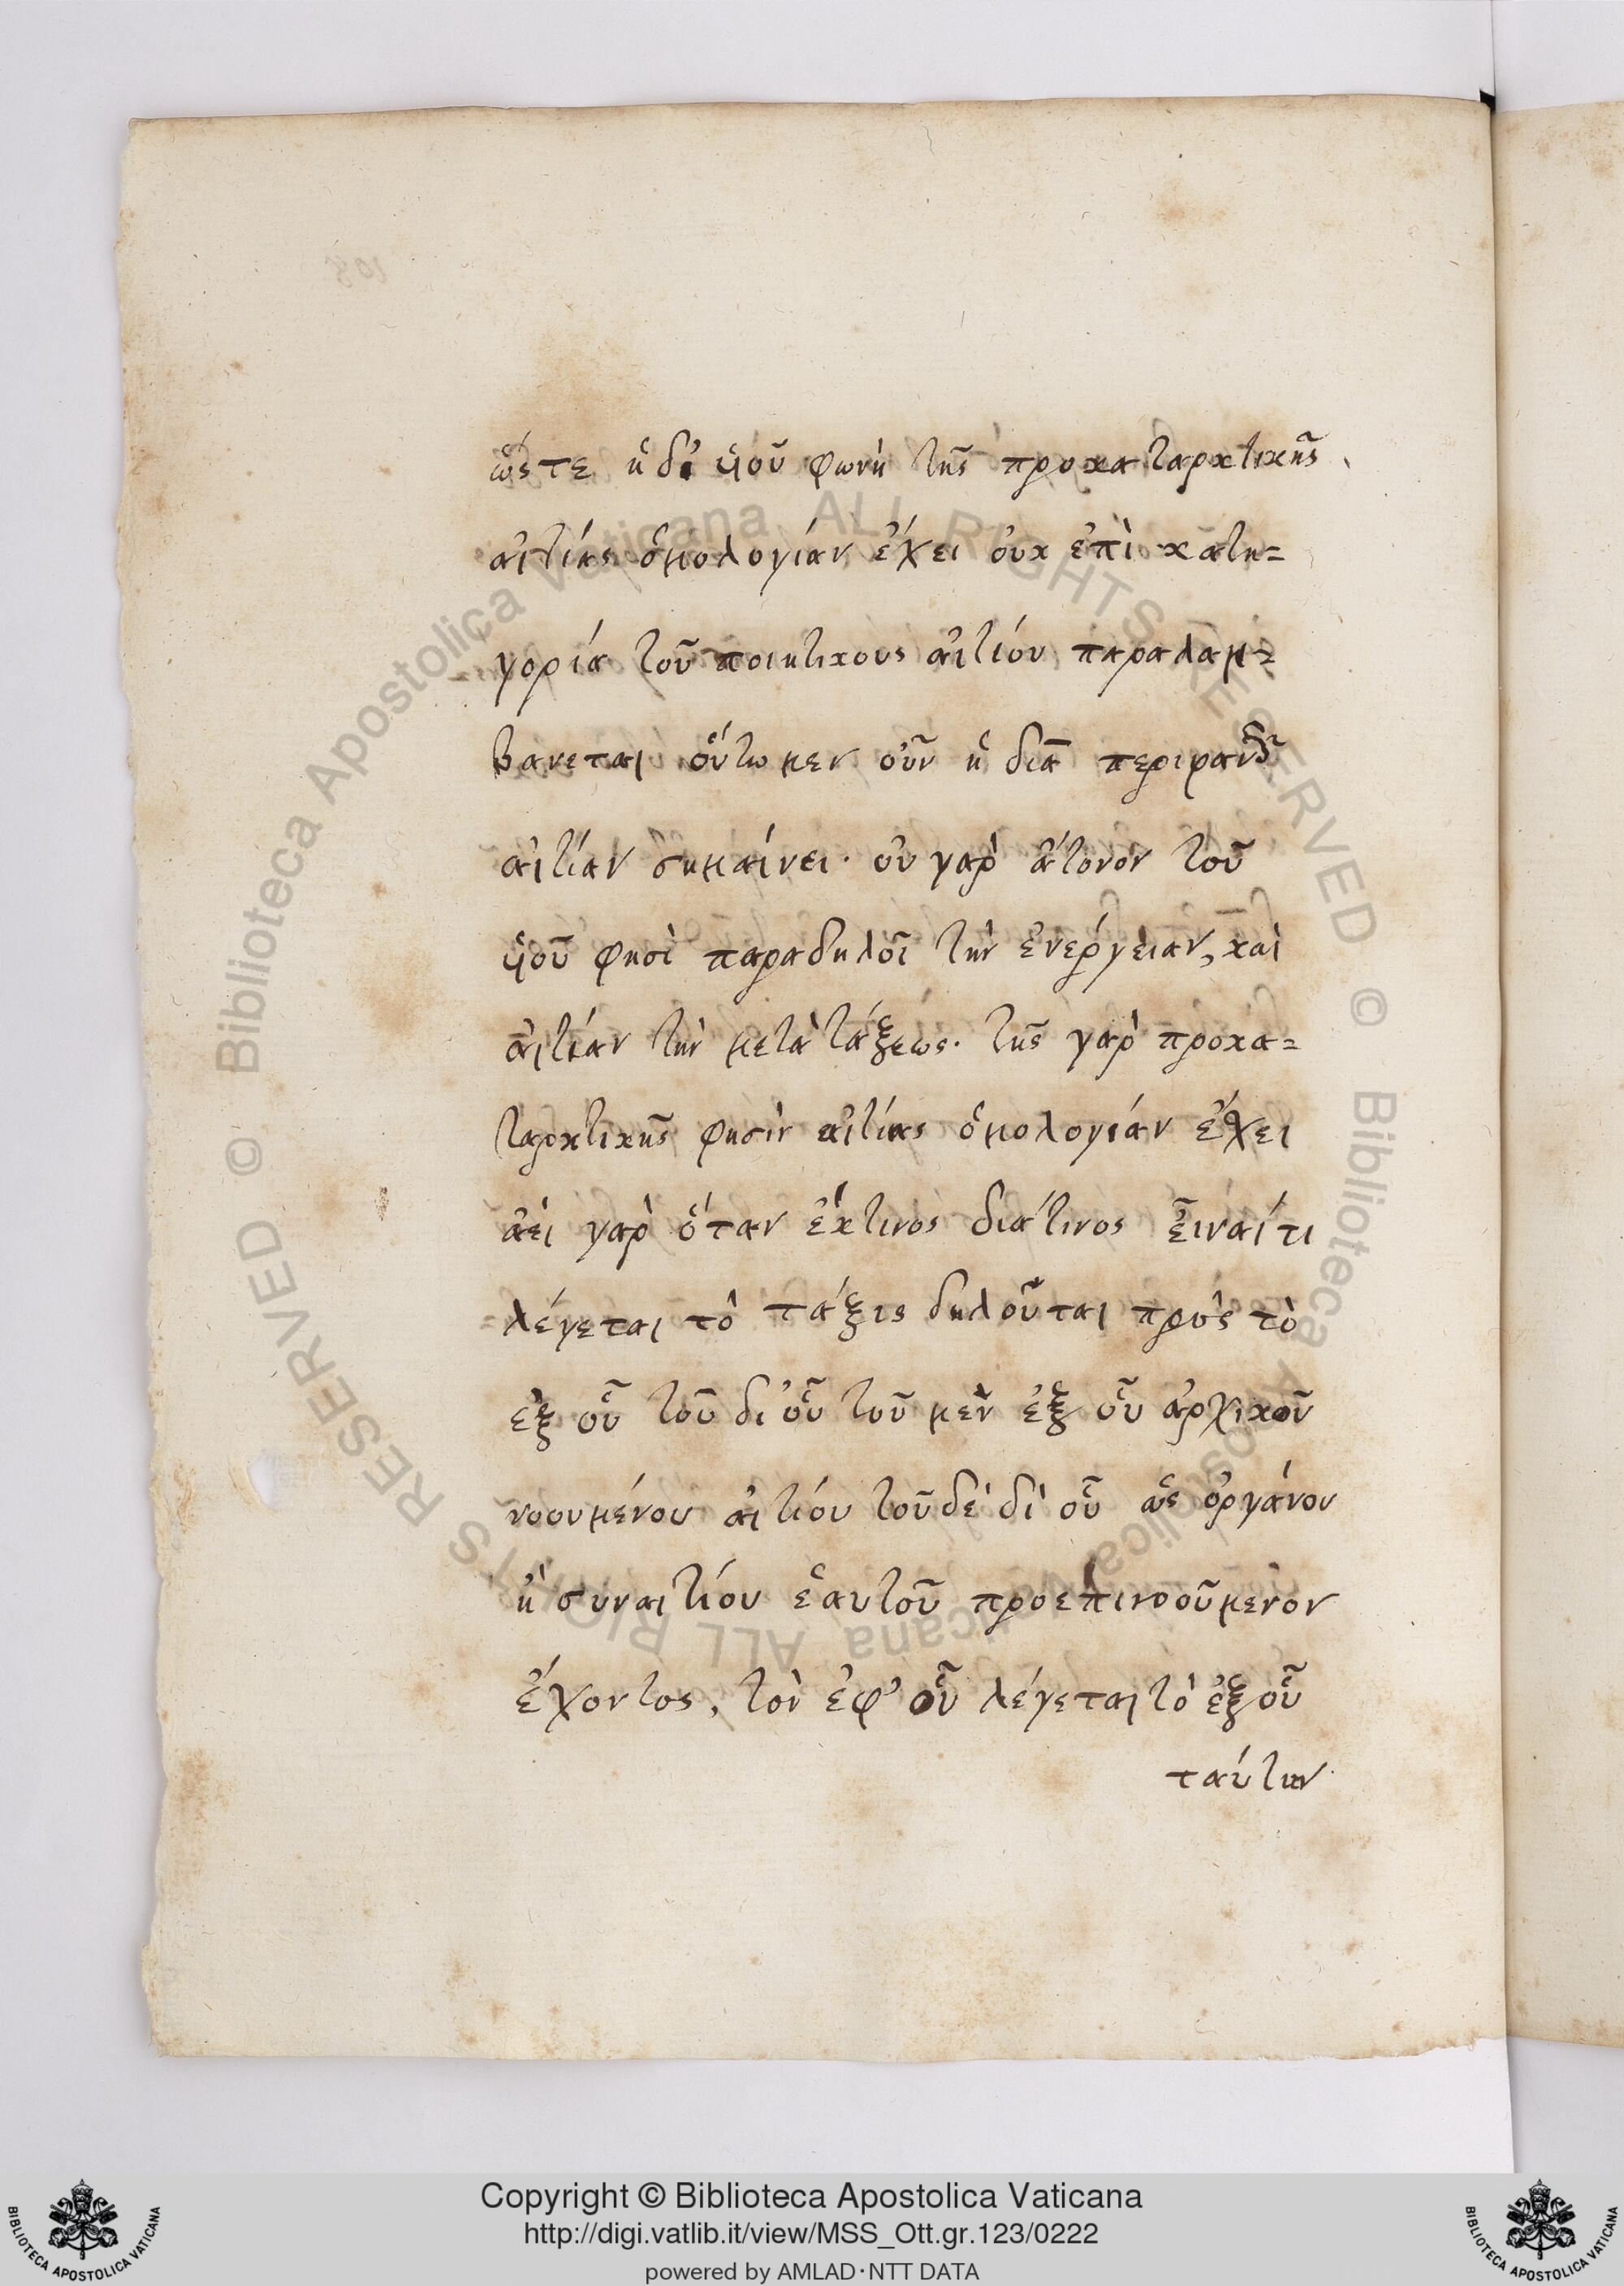 ὥστε ἡ δι' υἱοῦ φωνὴ τῆς προκαταρκτικῆς
αἰτίας ὁμολογίαν ἔχει οὐκ ἐπὶ κατη=
γορία τοῦ ποιητικους αἰτίου παραλαμ=
βάνεται οὕτω μεν οὖν ἡ διὰ
αἰτίαν σημαίνει· οὐ γαρ ἄτονον τοῦ
υἱοῦ φησὶ παραδηλοῖ τὴν ἐνεργειαν, καὶ
αἰτίαν τὴν μετὰ τάξεως· τῆς γαρ προκα=
ταρκτικῆς φησὶν αἰτίας ὁμολογίαν ἔχει
ἀεὶ γαρ ὅταν ἔκτινος διάτινος εἶναί τι
λέγεται τὸ τάξις δηλοῦται πρὸς τὸ
ἐξ οὗ τοῦ δι' οὗ τοῦ μὲν ἐξ οὗ ἀρχικοῦ
νοουμένου αἰτίου τοῦ δὲ δι οὗ ὡς ὀργάνου
ἢ συναιτίου ἑαυτοῦ προεπινοούμενον
ἔχοντος, τὸν ἐφ' οὗ λέγεται τὸ ἐξ οὗ
ταύτην
Copyright © Biblioteca Apostolica Vaticana
http://digi.vatlib.it/view/MSS_Ott.gr.123/0222
powered by AMLAD·NTT DATA
BIBLIOTECA APOSTOLICA VATICANA
BIBLIOTECA APOSTOLICA VATICANA
© Biblioteca Apostolica Vaticana ALL RIGHTS RESERVED © Biblioteca Apostolica Vaticana ALL RIGHTS RESERVED